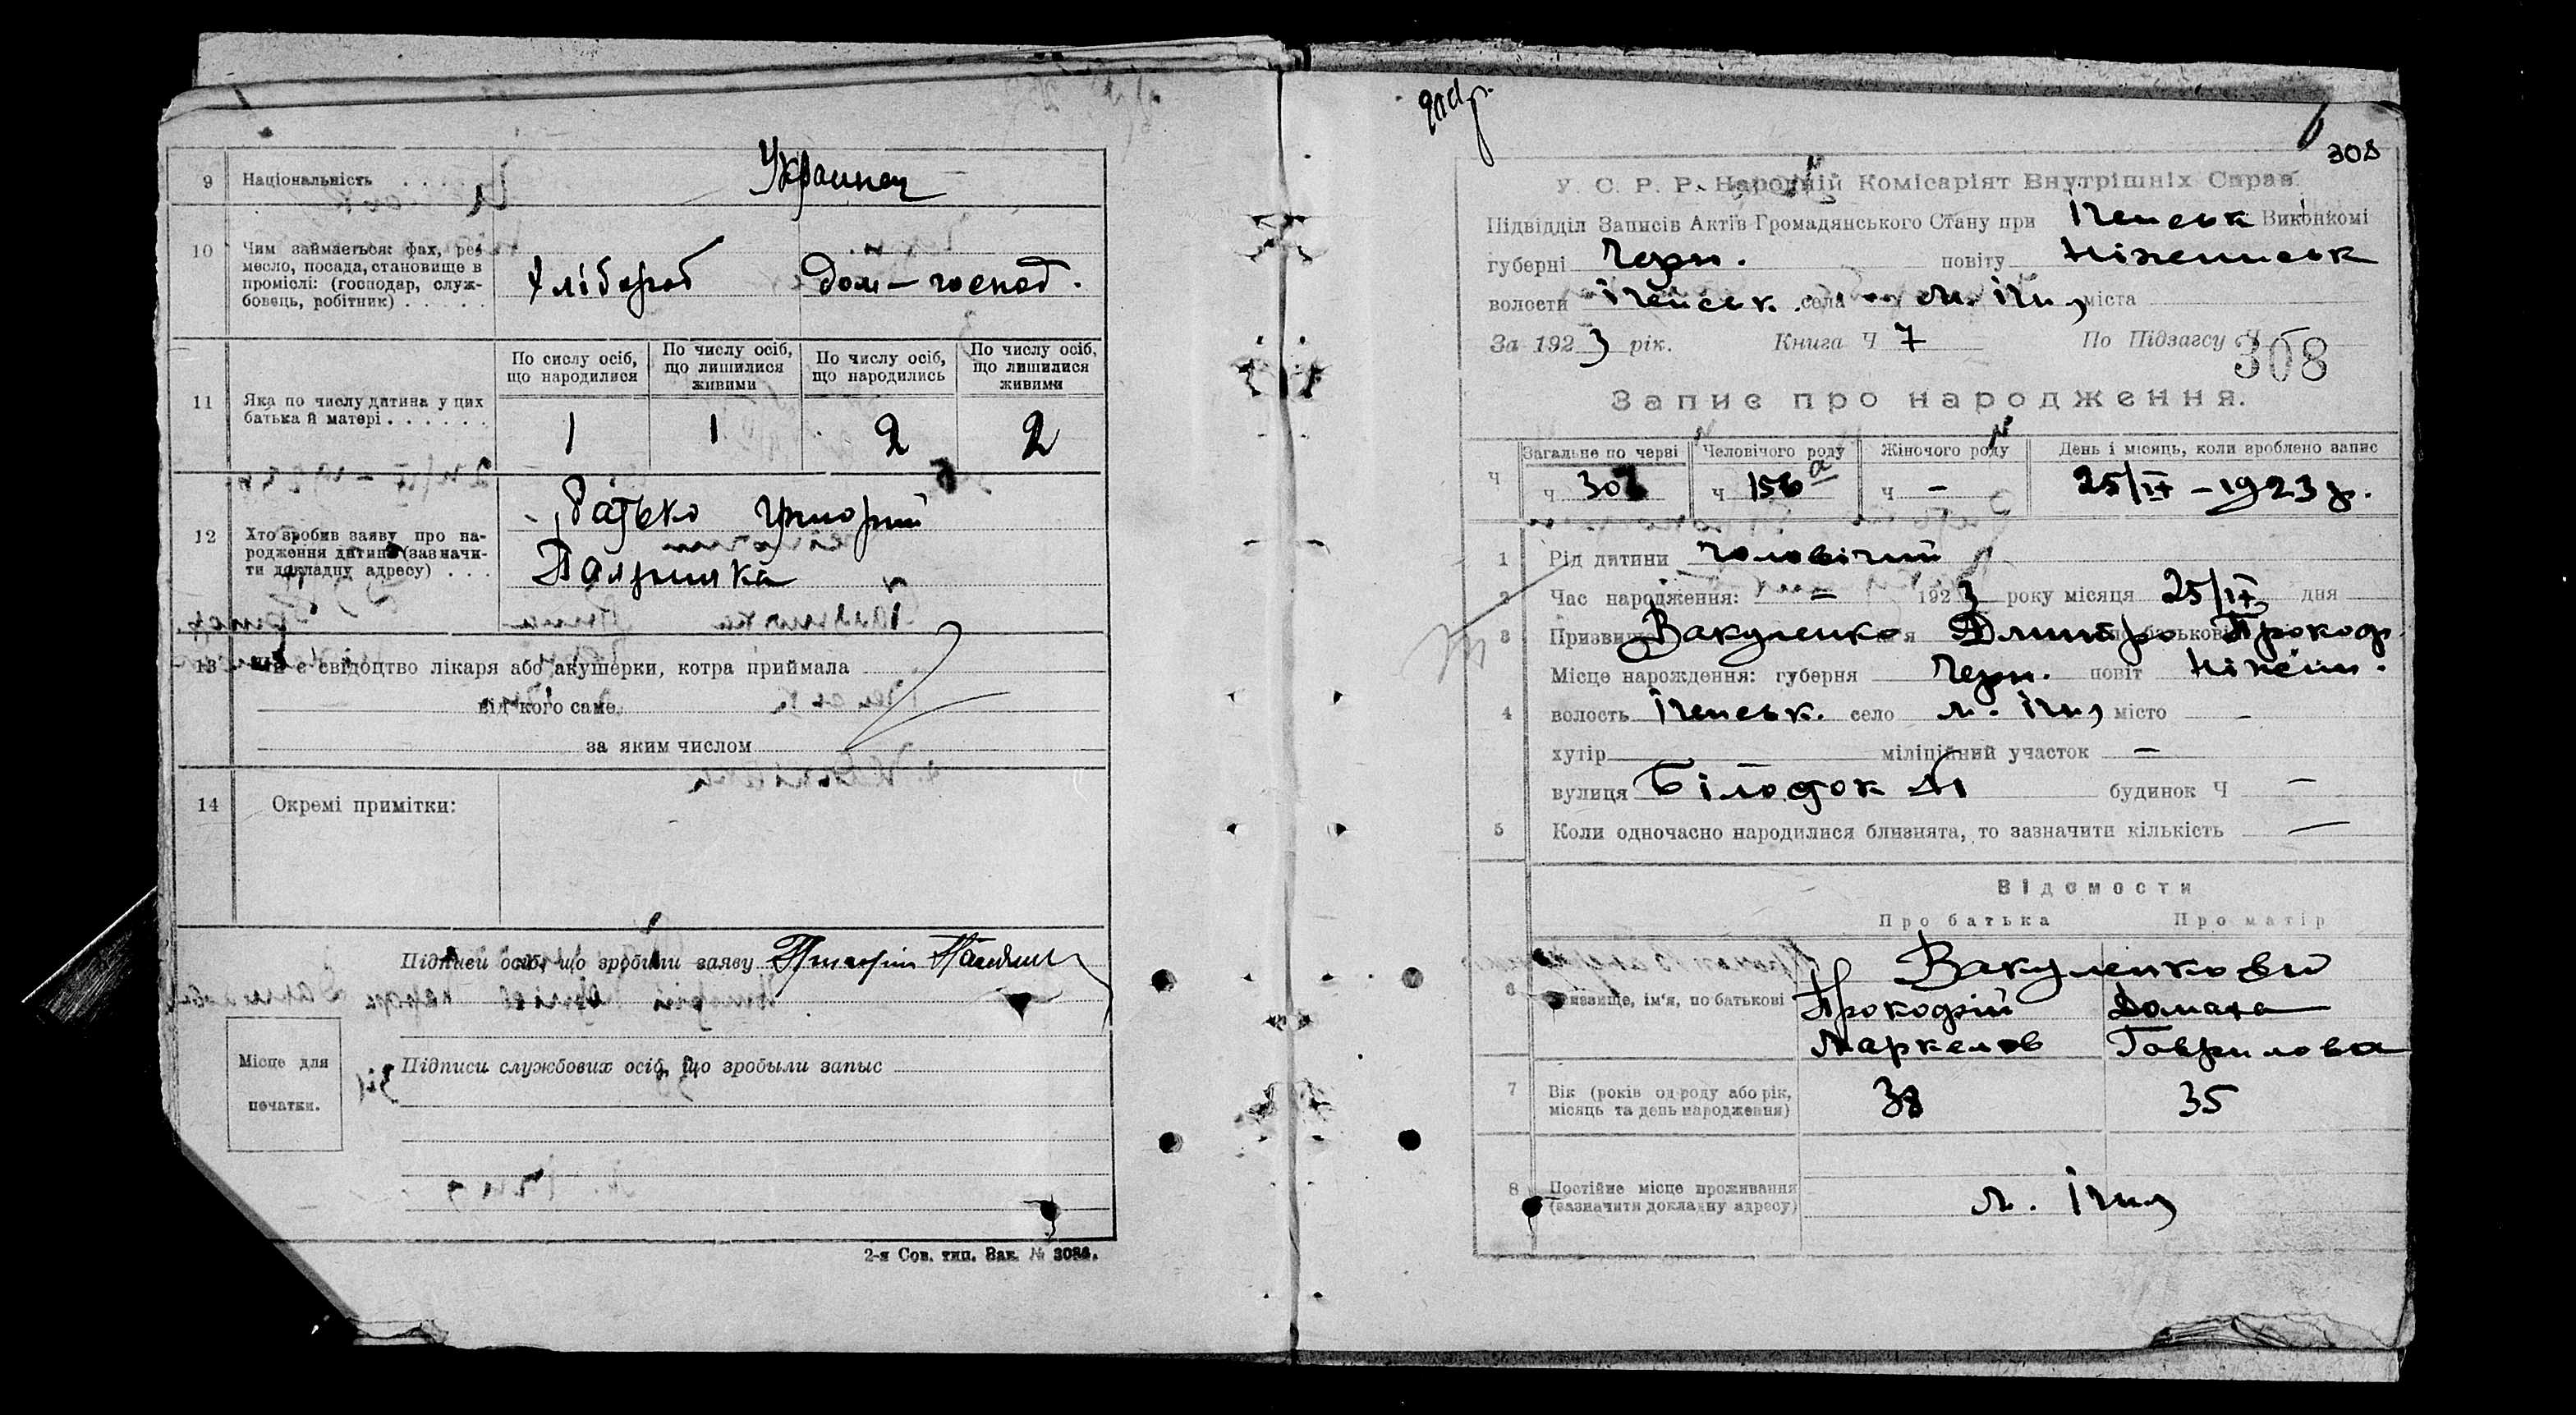 9 Національність . . . . Украинец
10 Чим займається: фах, ре-
месло, посада, становище в
проміслі: (господар, служ-
бовець, робітник) . . . . . Хлібороб дом — господ.
11 Яка по числу дитина у цих
батька й матері . . . . . .
По числу осіб, що народилися По числу осіб, що лишилися живими По числу осіб, що народились По числу осіб, що лишилися живими
1 1 2 2
12 Хто зробив заяву про на-
родження дитини (зазначи-
ти докладну адресу) . . .
Батько Григорий
13 Чи є свідоцтво лікаря або акушерки, котра приймала
від кого саме
за яким числом
14 Окремі примітки:
Підписи осіб, що зробили заяву
Місце для
печатки.
Підписи службових осіб, що зробыли запыс
2-я Сов. тип. Зак. № 3086.
308
У. С. Р. Р. Народній Комісаріят Внутрішніх Справ.
Підвідділ Записів Актів Громадянського Стану при Іченськ Виконкомі
губерні Черн. повіту Ніженськ
волости Іченськ. села м. Ічня міста
За 1923 рік. Книга Ч 7 По Підзагсу Ч 308
Запис про народження.
Загальне по черзі Человічого роду Жіночого роду День і місяць, коли зроблено запис
Ч Ч 308 Ч 156а Ч — 25/IX – 1923 р.
1 Рід дитини чоловічий
2 Час народження: — 1923 року місяця 25/IX дня
3 Призвище Вакуленко ім'я Дмитро по батькові Прокоф.
Місце нарождення: губерня Черн. повіт Ніжен.
4 волость Іченськ. село м. Ічня місто —
хутір міліційний участок —
вулиця будинок Ч —
5 Коли одночасно народилися близнята, то зазначити кількість —
Відомости
Про батька Про матір
6 Призвище, ім'я, по батькові
Вакуленкови
Прокофій Домаха
Маркелов Гаврилова
7 Вік (років од роду або рік,
місяць та день народження) 38 35
8 Постійне місце проживання
(зазначити докладну адресу) м. Ічня